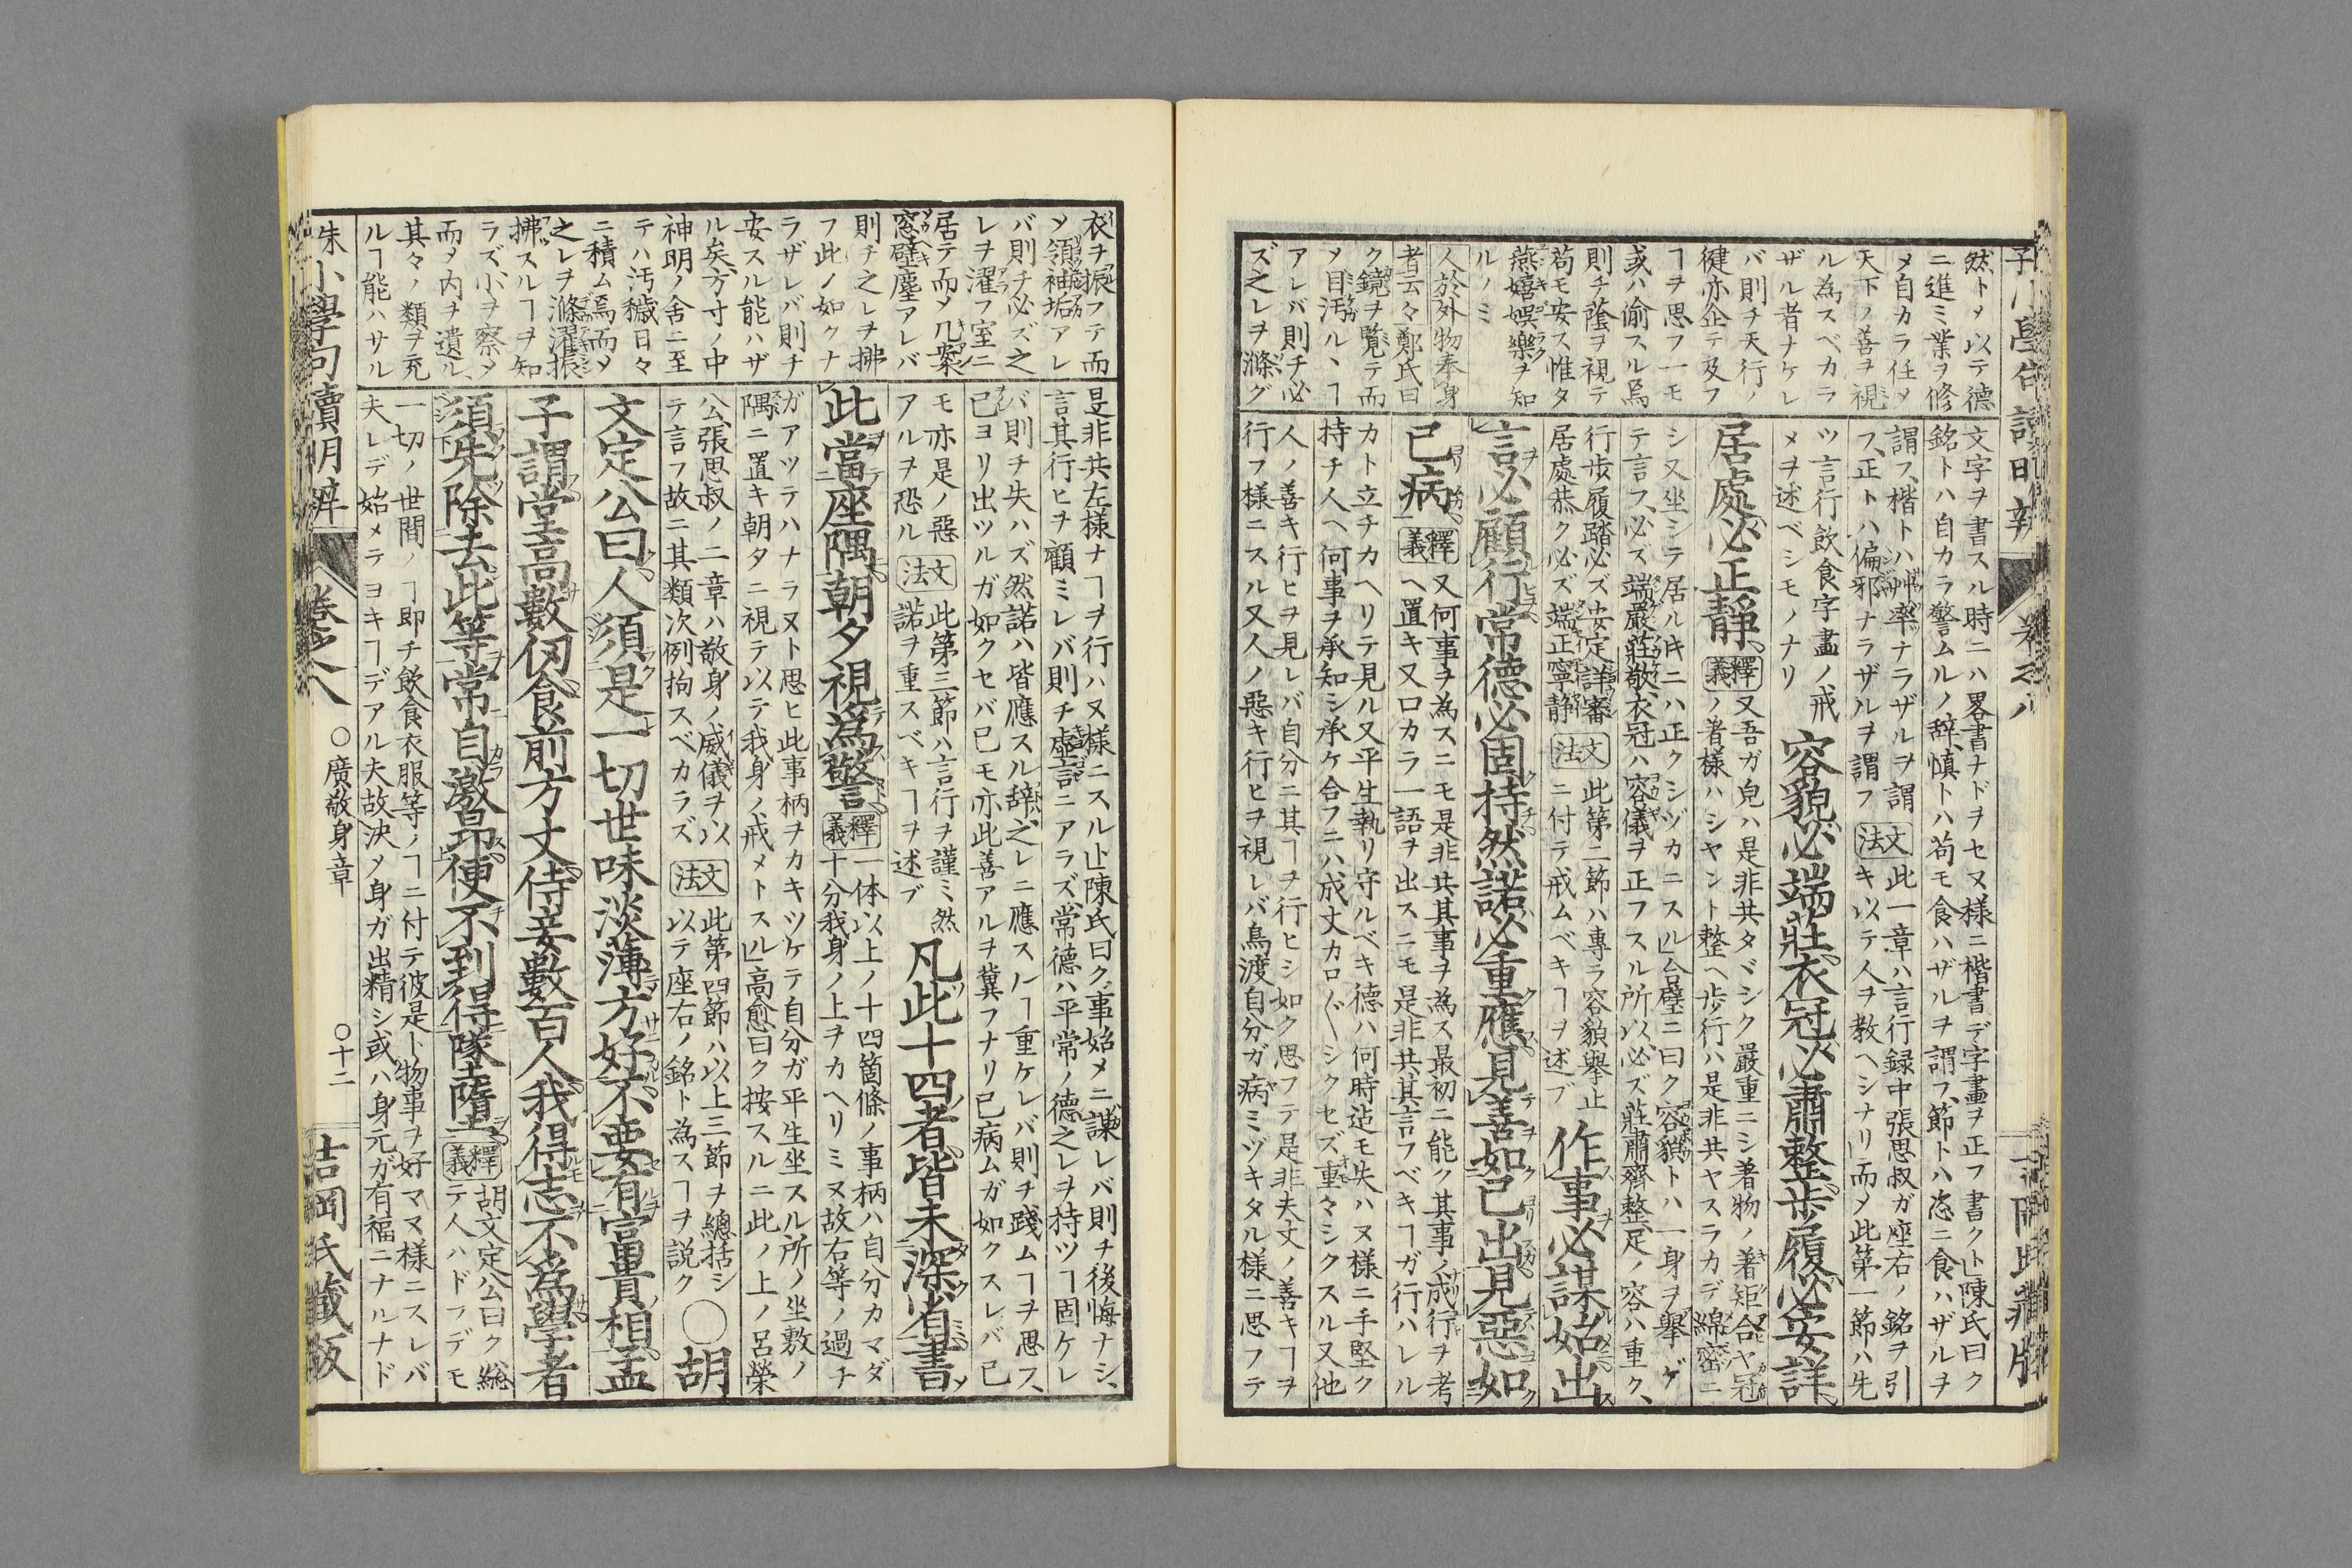 然トメ以テ德
ニ進ミ業ヲ修
メ自カラ任メ
天下ノ善ヲ視
ル為スベカラ
ザル者ナケレ
バ則ヲ天行ノ
健亦企テ及フ
ヿヲ思フ一モ
或ハ偷スル焉
則チ蔭ヲ視テ
苟モ安ス惟タ
燕嬉娯樂ヲ知
ルノミ
人於外物奉身
者云々鄭氏曰
ク鏡ヲ覽テ而
メ目汚ルヽヿ
アレバ則チ必
ズ之レヲ滌グ
文字ヲ書スル時ニハ畧書ナドヲセヌ様ニ楷書デ字畫ヲ正フ書クト」陳氏曰ク
銘トハ自カラ警ムルノ辞、慎トハ苟モ食ハザルヲ謂フ、節トハ恣ニ食ハザルヲ
謂フ、楷トハ艸率ナラザルヲ謂
フ、正トハ偏邪ナラザルヲ謂フ
文法
此一章ハ言行録中張思叔ガ座右ノ銘ヲ引
キ以テ人ヲ教ヘシナリ」而メ此第一節ハ先
ツ言行飲食字畫ノ戒
メヲ述ベシモノナリ
容貌必端莊衣冠必肅整歩履必安詳
居處必正靜
釋義
又吾ガ皃ハ是非共タヾシク嚴重ニシ着物ノ着矩合ヤ冠
ノ着様ハシヤント整ヘ歩行ハ是非共ヤスラカデ綿密ニ
シ又坐シテ居ルキニハ正クシヅカニスル」合璧ニ曰ク容貌トハ一身ヲ擧ゲ
テ言フ、必ズ端嚴莊敬衣冠ハ容儀ヲ正フスル所以、必ズ莊肅齊整、足ノ容ハ重ク、
行歩履踏必ズ安定詳審
居處恭ク必ズ端正寧静
文法
此第二節ハ專ラ容貌擧止
ニ付テ戒ムベキヿヲ述ブ
作事必謀始出
言必顧行常德必固持然諾必重應見善如己出見惡如
己病
釋義
又何事ヲ為スニモ是非共其事ヲ為ス最初ニ能ク其事ノ成行ヲ考
ヘ置キ又口カラ一語ヲ出スニモ是非共其言フベキヿガ行ハレル
カト立チカヘリテ見ル又平生執リ守ルベキ德ハ何時迠モ失ハヌ様ニ手堅ク
持チ人ヘ何事ヲ承知シ承ケ合フニハ成丈カロ〱シクセズ重々シクスル又他
人ノ善キ行ヒヲ見レバ自分ニ其ヿヲ行ヒシ如ク思フテ是非夫丈ノ善キヿヲ
行フ様ニスル又人ノ惡キ行ヒヲ視レバ鳥渡自分ガ病ミツキタル様ニ思フテ
衣ヲ振フテ而
メ領袖垢アレ
バ則チ必ズ之
レヲ濯フ室ニ
居テ而メ几案
窓壁塵アレバ
則チ之レヲ拂
フ此ノ如クナ
ラザレバ則チ
安スル能ハザ
ル矣、方寸ノ中
神明ノ舍ニ至
テハ汚穢日々
ニ積ム焉而メ
之レヲ滌濯振
拂スルヿヲ知
ラズ小ヲ察メ
而メ内ヲ遺ル、
其々ノ類ヲ充
ルヿ能ハサル
是非共左様ナヿヲ行ハヌ様ニスルト」陳氏曰ク、事始メニ謀レバ則チ後悔ナシ、
言其行ヒヲ顧ミレバ則チ虛言ニアラズ、常德ハ平常ノ德之レヲ持ツヿ固ケレ
バ則チ失ハズ然諾ハ皆應スル辞、之レニ應スルヿ重ケレバ則チ踐ムヿヲ思ス、
己ヨリ出ツルガ如クセバ已モ亦此善アルヲ冀フナリ已病ムガ如クスレバ已
モ亦是ノ惡
アルヲ恐ル
文法
此第三節ハ言行ヲ謹ミ、然
諾ヲ重スベキヿヲ述ブ
凡此十四者皆未深省書
此當座隅朝夕視爲警
釋義
一体以上ノ十四箇條ノ事柄ハ自分カマダ
十分我身ノ上ヲカヘリミヌ故右等ノ過チ
ガアツテハナラヌト思ヒ此事柄ヲカキツケテ自分ガ平生坐スル所ノ坐敷ノ
隅ニ置キ朝タニ視テ以テ我身ノ戒メトスル」高愈曰ク按スルニ此ノ上ノ呂榮
公張思叔ノ二章ハ敬身ノ威儀ヲ以
テ言フ故ニ其類次例拘スベカラズ
文法
此第四節ハ以上三節ヲ總括シ
以テ座右ノ銘ト為スヿヲ説ク
○胡
文定公曰人須是一切世味淡薄方好不要有富貴相孟
子謂堂高數仞食前方丈侍妾數百人我得志不爲學者
須先除去此等常自激昂便不到得墜墮
釋義
胡文定公曰ク総
テ人ハドフデモ
一切ノ世間ノヿ即チ飲食衣服等ノヿニ付テ彼是ト物事ヲ好マヌ様ニスレバ
夫レデ始メテヨキヿデアル夫故决メ身ガ出精シ或ハ身元ガ有福ニナルナド
朱小學句讀明辨
卷之八
○廣敬身章
○十二
吉岡氏藏版